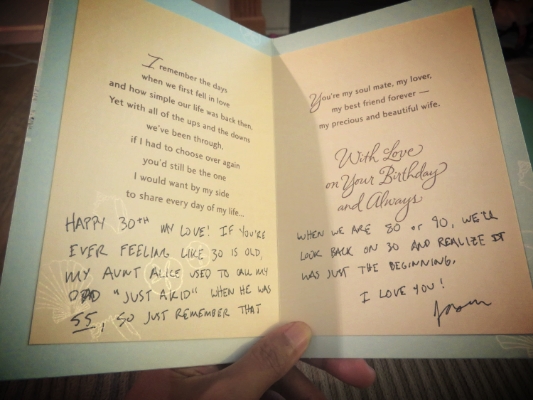 I remember the days
when we first fell in love
and how simple our life was back then.
Yet with all of the ups and the downs
we've been through,
if I had to choose over again
you'd still be the one
I would want by my side
to share every day of my life...
HAPPY 30TH MY LOVE! IF YOU'RE
EVER FEELING LIKE 30 IS OLD,
MY AUNT ALICE USED TO CALL MY
DAD "JUST A KID" WHEN HE WAS
55, SO JUST REMEMBER THAT
You're my soul mate, my lover,
my best friend forever —
my precious and beautiful wife.
With Love
on Your Birthday
and Always
WHEN WE ARE 80 OR 90, WE'LL
LOOK BACK ON 30 AND REALIZE IT
WAS JUST THE BEGINNING.
I LOVE YOU!
Jason